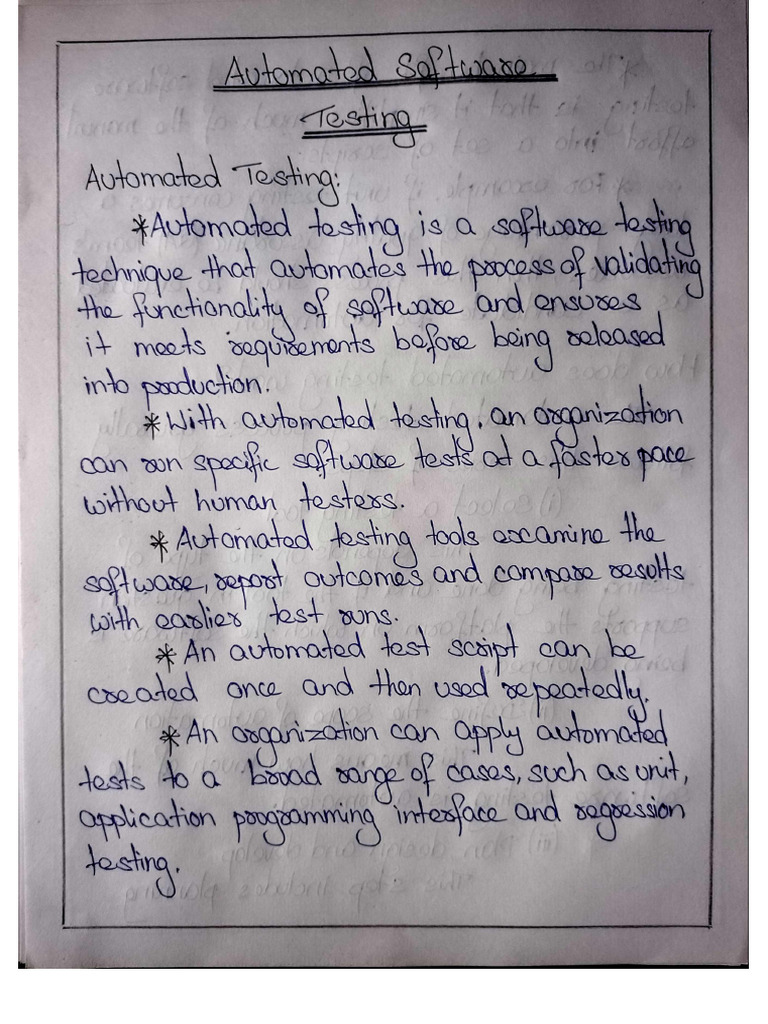 Automated Software
Testing
Automated Testing:
*Automated testing is a software testing
technique that automates the process of validating
the functionality of software and ensures
it meets requirements before being released
into production.
*With automated testing, an organization
can run specific software tests at a faster pace
without human testers.
*Automated testing tools examine the
software, report outcomes and compare results
with earlier test runs.
*An automated test script can be
created once and then used repeatedly.
*An organization can apply automated
tests to a broad range of cases, such as unit,
application programming interface and regression
testing.